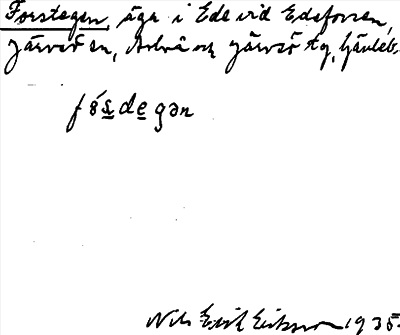 Forstegen, äga i Ede vid Edeforsen,
Järvsö sn, Arbrå och Järvsö tg, Gävlebs.
fåsdegən
Nils Erik Eriksson 1935.